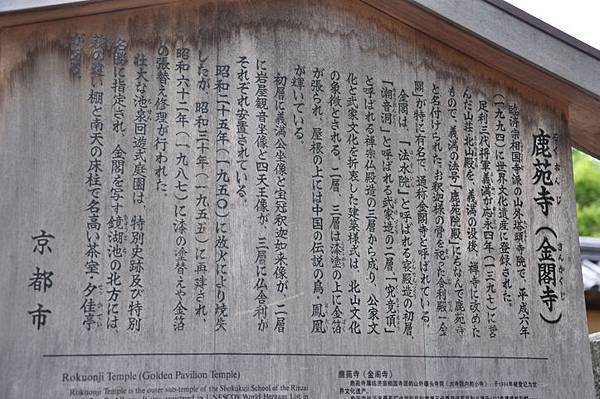 鹿苑寺（金閣寺）
ろくおんじ
きんかくじ
臨済宗相国寺派の山外塔頭寺院で、平成六年
（一九九四）に世界文化遺産に登録された。
足利三代将軍義満が応永四年（一三九七）に営
んだ山荘北山殿を、義満の没後、禅寺に改めた
もので、義満の法号「鹿苑院殿」にちなんで鹿苑寺
と名付けられた。お釈迦様の骨を祀った舎利殿「金
閣」が特に有名で、通称金閣寺と呼ばれている。
金閣は、「法水院」と呼ばれる寝殿造の初層、
「潮音洞」と呼ばれる武家造の二層、「究竟頂」
と呼ばれる禅宗仏殿造の三層から成り、公家文
化と武家文化を折衷した建築様式は、北山文化
の象徴とされる。二層、三層は漆塗の上に金箔
が張られ、屋根の上には中国の伝説の鳥・鳳凰
が輝いている。
初層に義満公坐像と宝冠釈迦如来像が、二層
に岩屋観音坐像と四天王像が、三層に仏舎利が
それぞれ安置されている。
昭和二十五年（一九五〇）に放火により焼失
したが、昭和三十年（一九五五）に再建され、
昭和六十二年（一九八七）に漆の塗替えや金箔
の張替え修理が行われた。
壮大な池泉回遊式庭園は、特別史跡及び特別
名勝に指定され、金閣を写す鏡湖池の北方には、
萩の違い棚と南天の床柱で名高い茶室・夕佳亭
がある。
京都市
Rokuonji Temple (Golden Pavilion Temple)
Rokuonji Temple is the outer sub-temple of the Shokokuji School of the Rinzai
鹿苑寺（金阁寺）